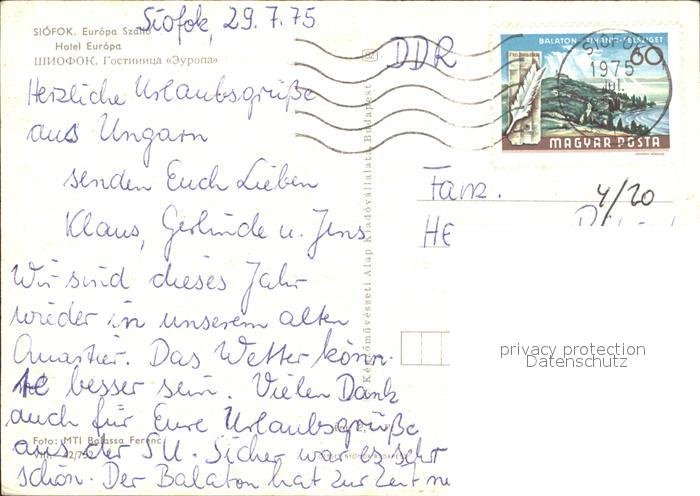 Siófok, 29.7.75
SIÓFOK. Európa Szálló
Hotel Európa
ШИОФОК. Гостиница «Эуропа»
DDR
BALATON - TIHANYI-FÉLSZIGET
60f
SIÓFOK
1975
MAGYAR POSTA
Herzliche Urlaubsgrüße
aus Ungarn
senden Euch Lieben
Klaus, Gerlinde u. Jens
Wir sind dieses Jahr
wieder in unserem alten
Quartier. Das Wetter könn-
te besser sein. Vielen Dank
auch für Eure Urlaubsgrüße
aus der SU. Sicher war es sehr
schön. Der Balaton hat zur Zeit
Foto: MTI Balassa Ferenc
Képzőművészeti Alap Kiadóvállalata, Budapest
Fam.
4/20
HE
privacy protection
Datenschutz